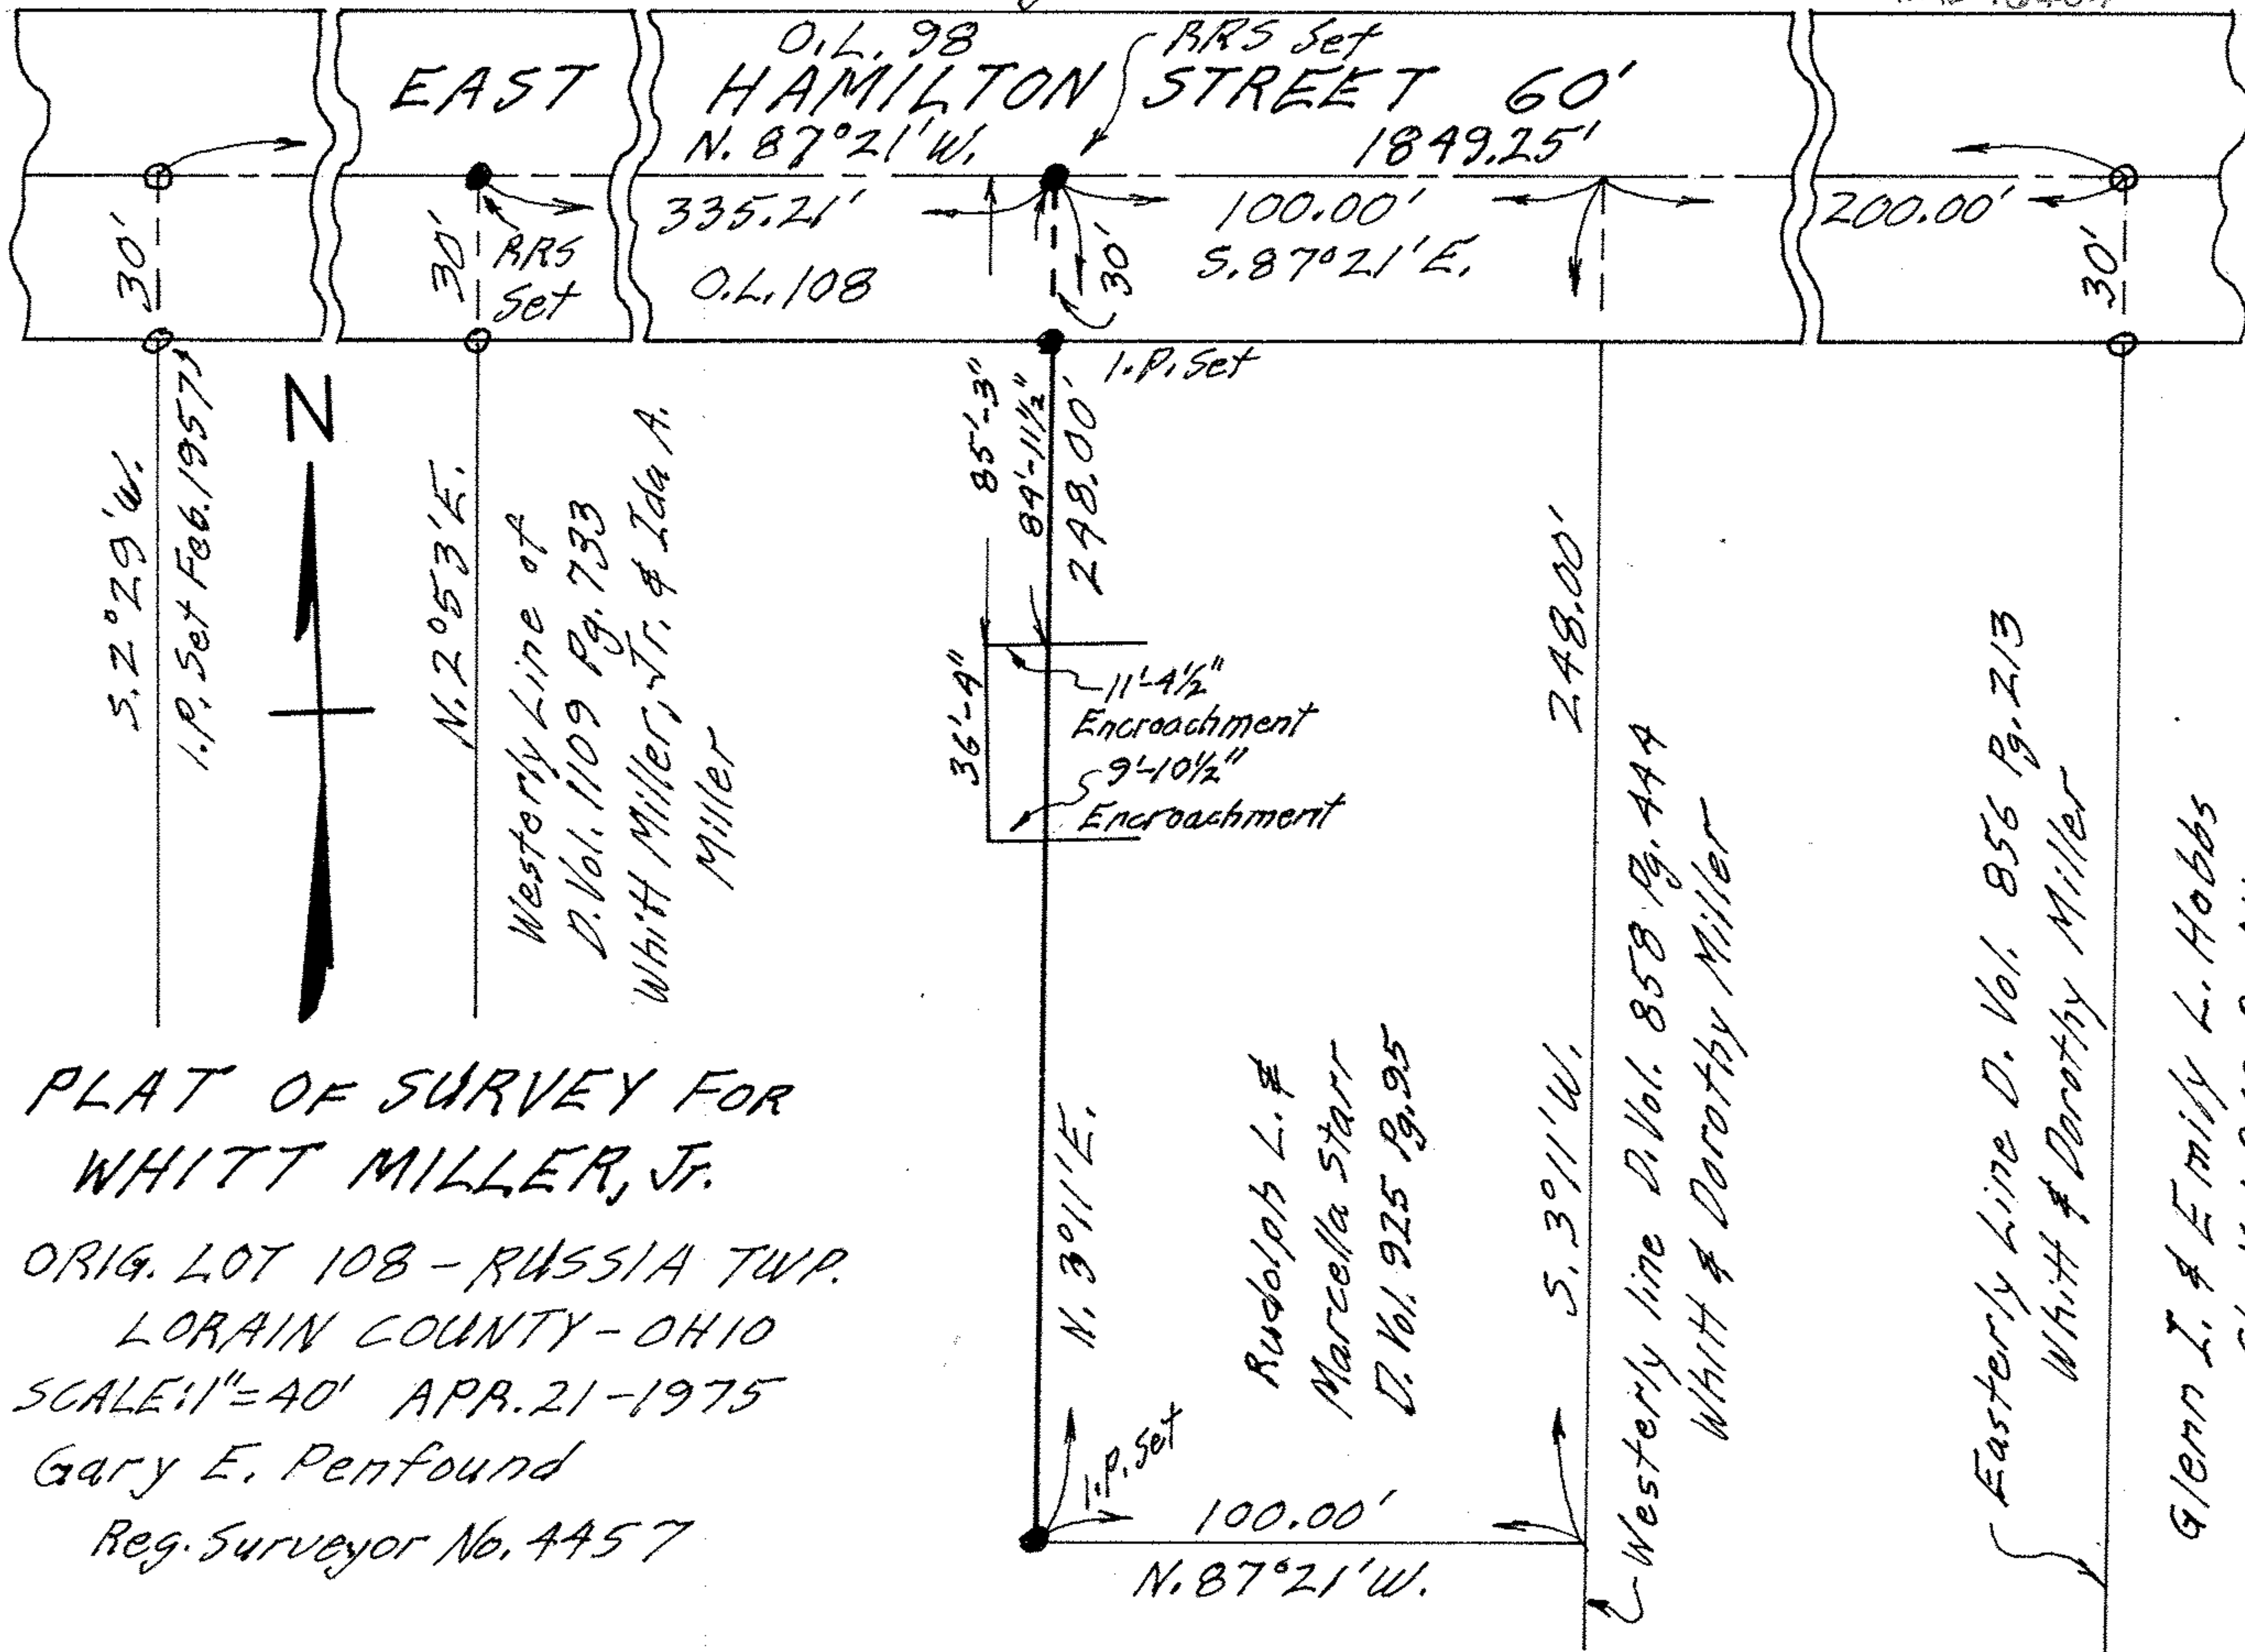 O.L. 98
RRS Set
EAST HAMILTON STREET 60'
N. 87°21'W.
1849.25'
335.21'
100.00'
200.00'
S. 87°21'E.
O.L. 108
30'
30'
RRS
Set
30'
30'
I.P. Set
S. 2°29'W.
I.P. Set Feb. 1957
N
N. 2°53'E.
Westerly Line of
D. Vol. 1109 Pg. 733
Whitt Miller, Jr. & Ida A.
Miller
85'-3"
84'-11½"
248.00'
36'-4"
11'-4½"
Encroachment
9'-10½"
Encroachment
N. 3°11'E.
Rudolph L. &
Marcella Starr
D. Vol. 925 Pg. 95
248.00'
S. 3°11'W.
Westerly line D. Vol. 858 Pg. 444
Whitt & Dorothy Miller
Easterly Line D. Vol. 856 Pg. 213
Whitt & Dorothy Miller
Glenn I. & Emily L. Hobbs
I.P. Set
100.00'
N. 87°21'W.
PLAT OF SURVEY FOR
WHITT MILLER, Jr.
ORIG. LOT 108 - RUSSIA TWP.
LORAIN COUNTY - OHIO
SCALE: 1"=40' APR. 21-1975
Gary E. Penfound
Reg. Surveyor No. 4457